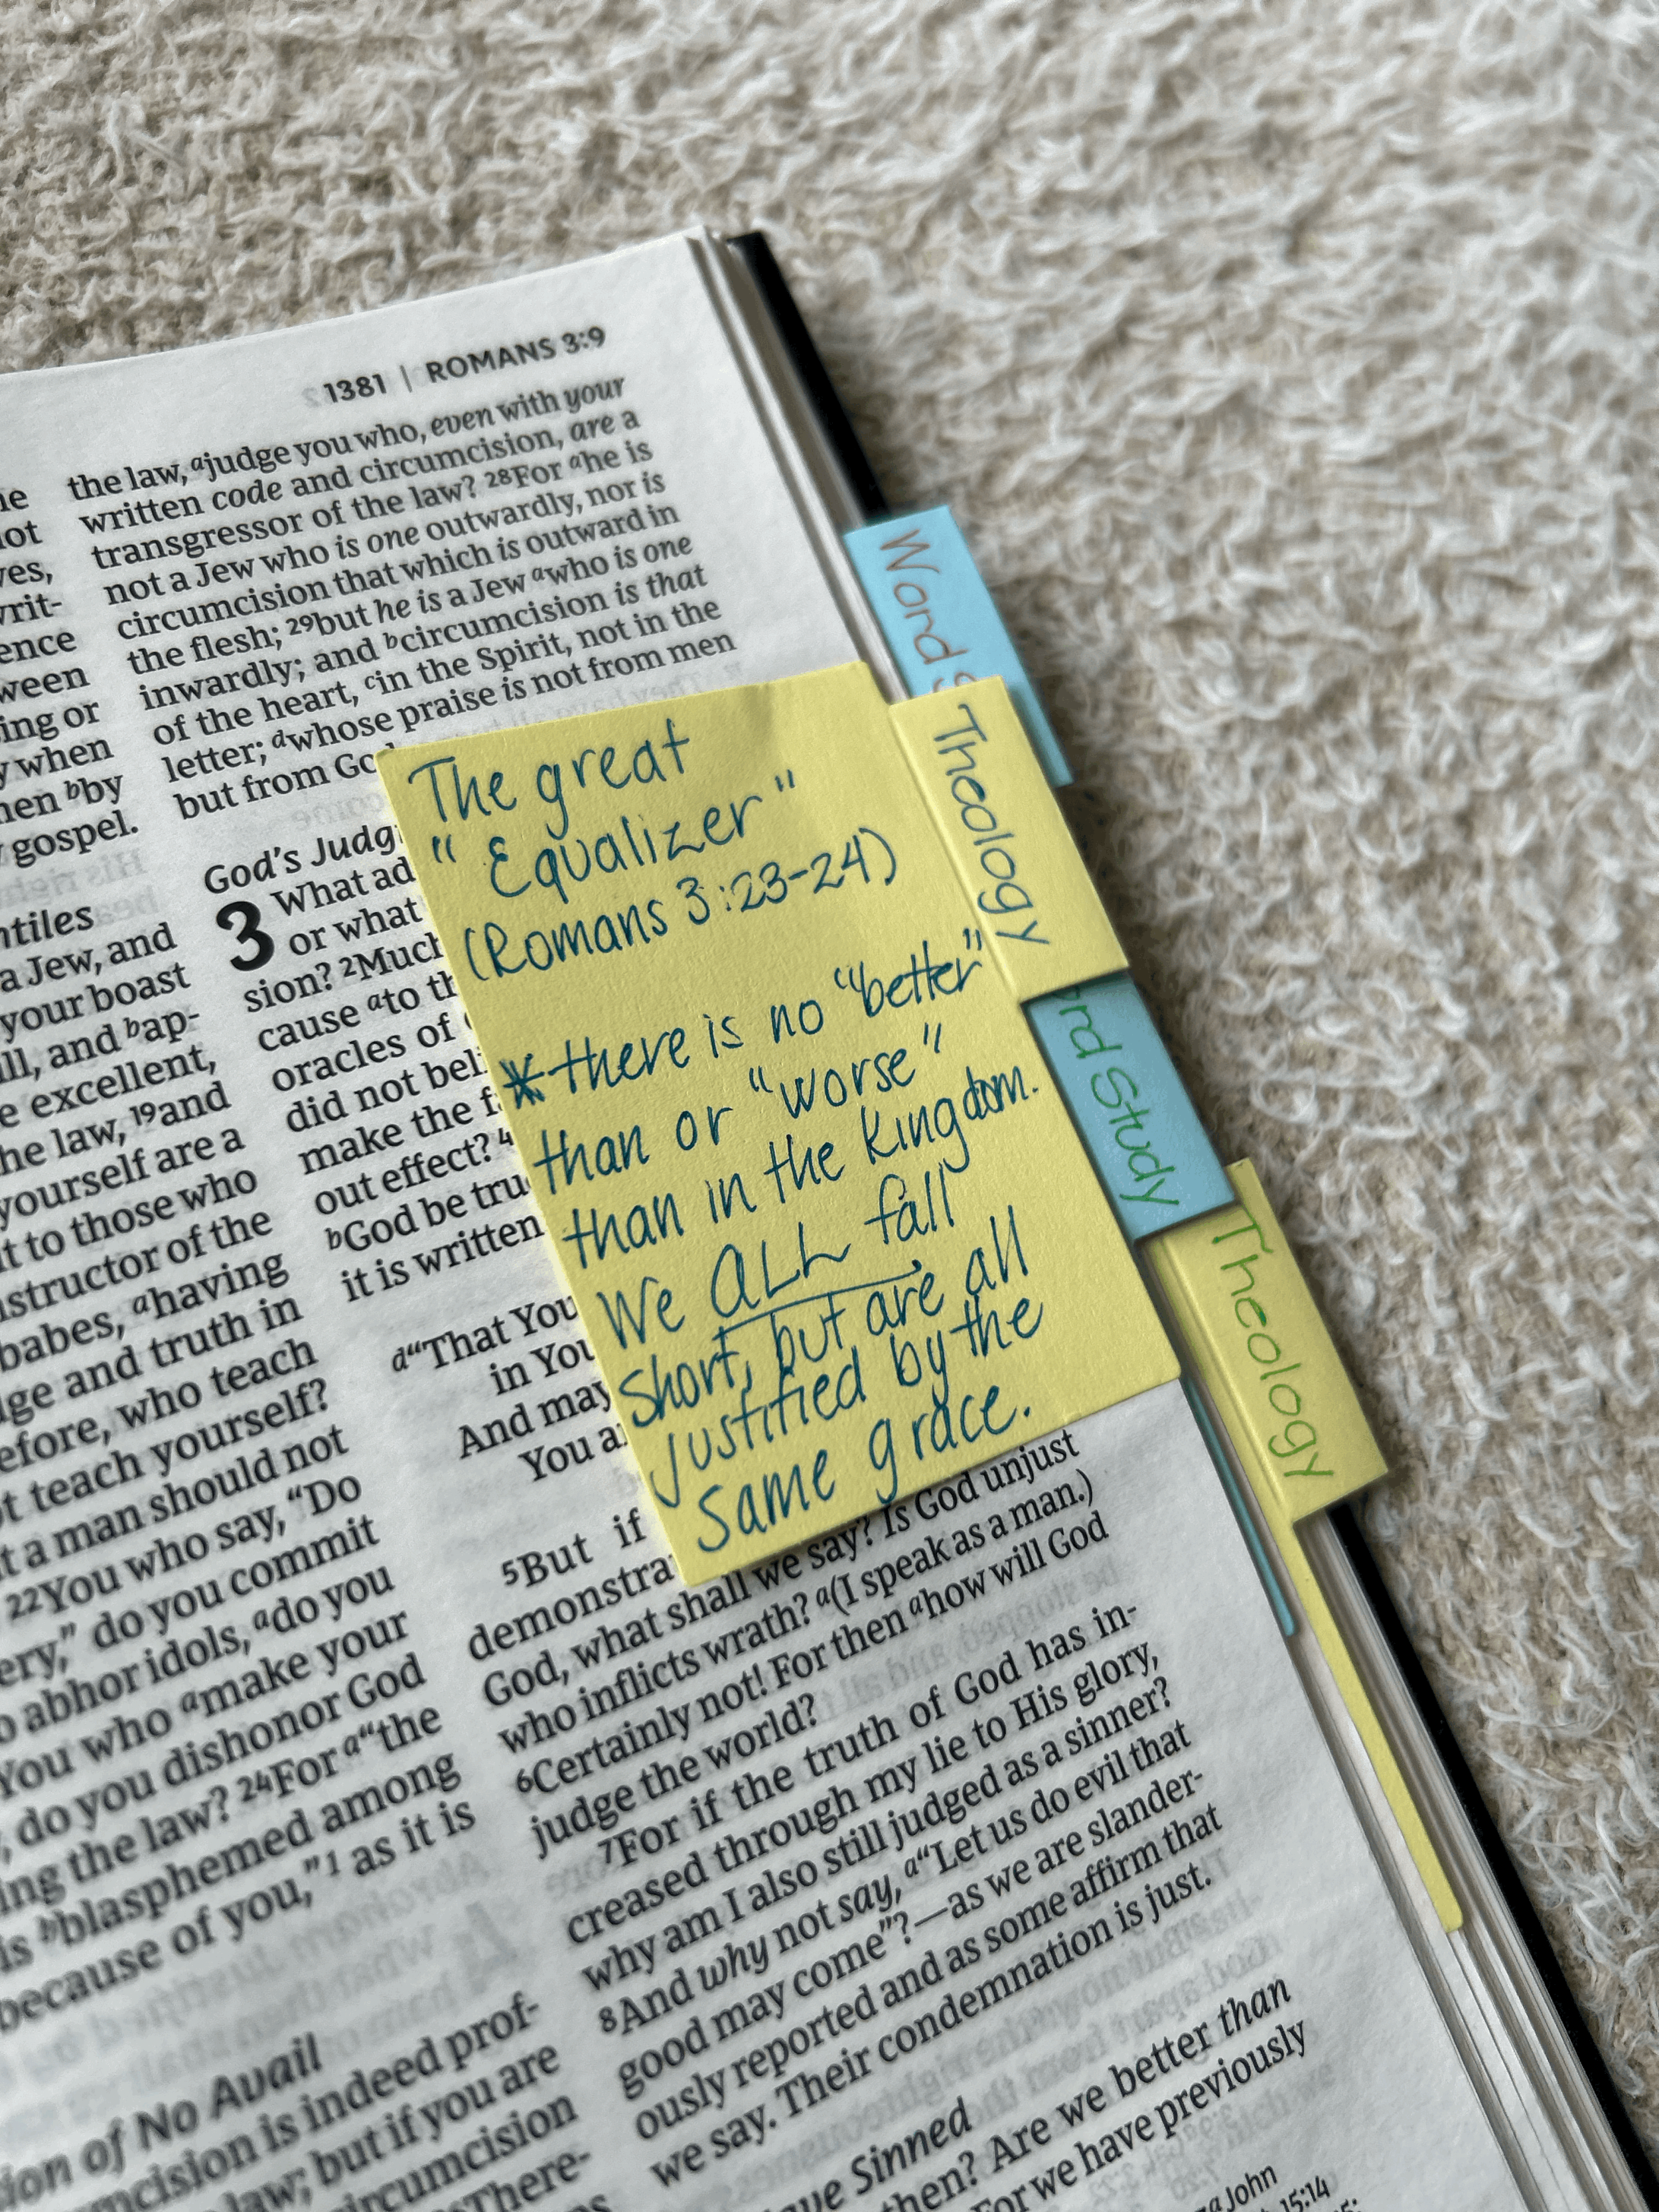 1381 | ROMANS 3:9
the law, ᵃjudge you who, even with your
written code and circumcision, are a
transgressor of the law? ²⁸For ᵃhe is
not a Jew who is one outwardly, nor is
circumcision that which is outward in
the flesh; ²⁹but he is a Jew ᵃwho is one
inwardly; and ᵇcircumcision is that
of the heart, ᶜin the Spirit, not in the
letter; ᵈwhose praise is not from men
but from
God's
3 What
or what
sion? ²Much
cause ᵃto
oracles of
did not
make the
out effect?
ᵇGod be
it is written
ᵈ“That You
in
And may
You
⁵But if
God, what shall we say? Is God unjust
who inflicts wrath? ᵃ(I speak as a man.)
⁶Certainly not! For then ᵃhow will God
judge the world?
⁷For if the truth of God has in-
creased through my lie to His glory,
why am I also still judged as a sinner?
⁸And why not say, ᵃ“Let us do evil that
good may come”?—as we are slander-
ously reported and as some affirm that
we say. Their condemnation is just.
Sinned
then? Are we better than
For we have previously
ᵃJohn
15:14
The great
“Equalizer”
(Romans 3:23-24)
*there is no “better”
than or “worse”
than in the Kingdom.
We ALL fall
short, but are all
justified by the
same grace.
Word S
Theology
rd Study
Theology
not
ence
ing or
when
ᵇby
gospel.
a Jew, and
your boast
and ᵇap-
excellent,
law, ¹⁹and
yourself are a
to those who
of the
babes, ᵃhaving
and truth in
who teach
teach yourself?
a man should not
²²You who say, “Do
do you commit
abhor idols, ᵃdo you
You who ᵃmake your
do you dishonor God
the law? ²⁴For ᵃ“the
is ᵇblasphemed among
because of you,”¹ as it is
of No Avail
is indeed prof-
law; but if you are
There-